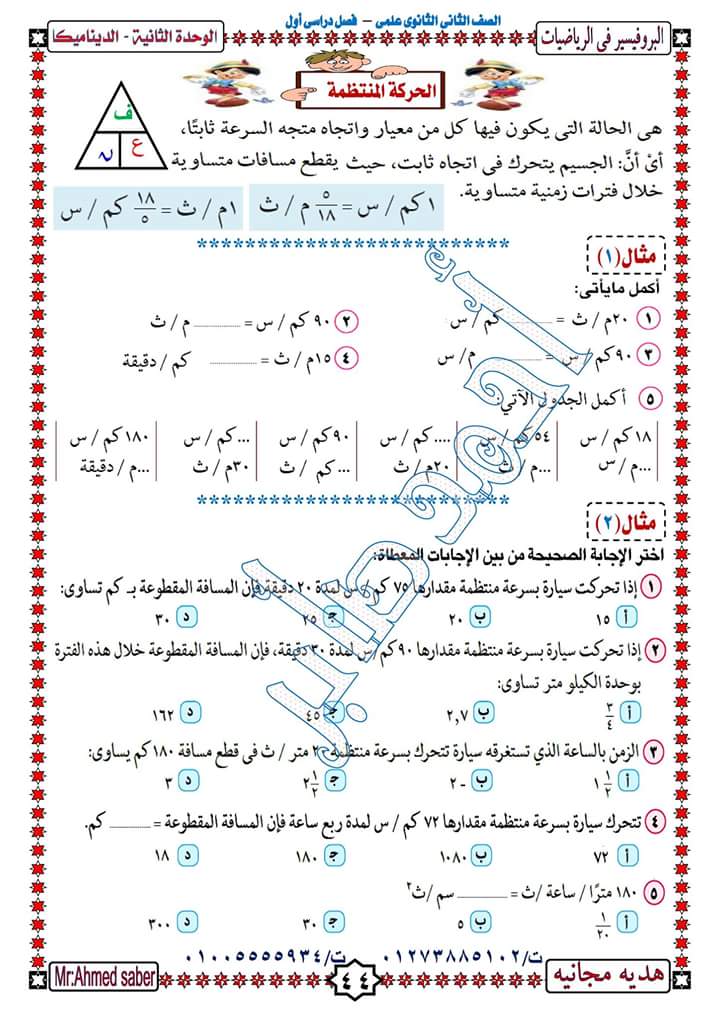 الصف الثانى الثانوى علمى – فصل دراسى أول
البروفيسير فى الرياضيات
الوحدة الثانية - الديناميكا
الحركة المنتظمة
ف
ع
ن
هى الحالة التى يكون فيها كل من معيار واتجاه متجه السرعة ثابتًا،
أىْ أنَّ: الجسيم يتحرك فى اتجاه ثابت، حيث يقطع مسافات متساوية
خلال فترات زمنية متساوية.
١ كم / س = ٥/١٨ م / ث
١م / ث = ١٨/٥ كم / س
**************************
مثال(١)
أكمل مايأتى:
١ ٢٠م / ث = ........ كم / س
٢ ٩٠ كم / س = ........ م / ث
٣ ٩٠كم / س = ........ م / س
٤ ١٥م / ث = ........ كم / دقيقة
٥ أكمل الجدول الآتي:
١٨ كم / س | ٥٤ كم / س | .... كم / س | ٩٠ كم / س | ... كم / س | ١٨٠ كم / س
...م / س | ...م / ث | ٢٠م / ث | ... كم / ث | ٣٠م / ث | ...م / دقيقة
**************************
مثال(٢)
اختر الإجابة الصحيحة من بين الإجابات المعطاة:
١ إذا تحركت سيارة بسرعة منتظمة مقدارها ٧٥ كم / س لمدة ٢٠ دقيقة فإن المسافة المقطوعة بـ كم تساوى:
أ ١٥ ب ٢٠ جـ ٢٥ د ٣٠
٢ إذا تحركت سيارة بسرعة منتظمة مقدارها ٩٠ كم/س لمدة ٣٠ دقيقة، فإن المسافة المقطوعة خلال هذه الفترة
بوحدة الكيلو متر تساوى:
أ ٣/٤ ب ٢,٧ جـ ٤٥ د ١٦٢
٣ الزمن بالساعة الذي تستغرقه سيارة تتحرك بسرعة منتظمة متر / ث فى قطع مسافة ١٨٠ كم يساوى:
أ ١ ١/٢ ب ٢٠ جـ ٢ ١/٢ د ٣
٤ تتحرك سيارة بسرعة منتظمة مقدارها ٧٢ كم / س لمدة ربع ساعة فإن المسافة المقطوعة = ........ كم.
أ ٧٢ ب ١٠٨٠ جـ ١٨٠ د ١٨
٥ ١٨٠ مترًا / ساعة /ث = ........ سم /ث٢
أ ١/٢٠ ب ٥ جـ ٣٠ د ٣٠٠
هديه مجانيه
ت/ ٠١٢٧٣٨٨٥١٠٢
٤٤
ت/ ٠١٠٠٥٥٥٥٩٣٤
Mr.Ahmed saber
أحمد صابر